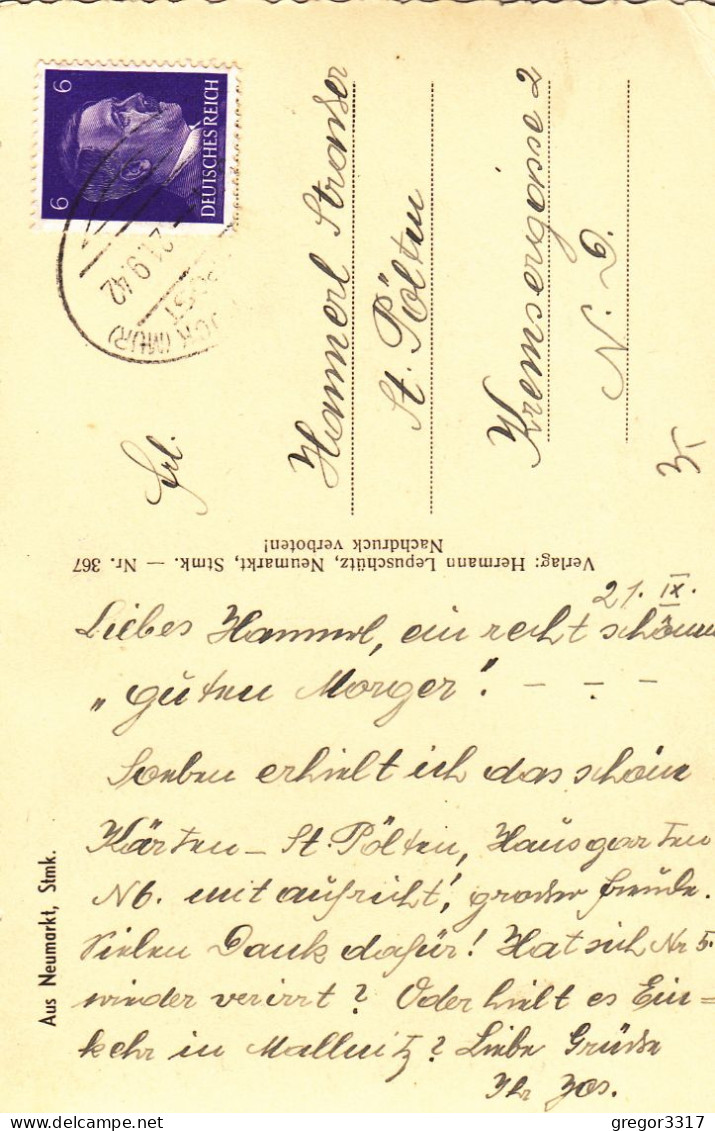 6 6
DEUTSCHES REICH
21.9.42
POST
UCK (MUR)
Frl.
Hannerl Strasser
St. Pölten
Kremsergasse 2
N. D.
3,-
Verlag: Hermann Lepuschütz, Neumarkt, Stmk. — Nr. 367
Nachdruck verboten!
Aus Neumarkt, Stmk.
21. IX.
Liebes Hannerl, ein recht schönen
„guten Morgen". - . -
Soeben erhielt ich das schöne
Kärten - St. Pölten, Hausgarten
Nb. mit aufricht', grosser Freude.
Vielen Dank dafür! Hat sich Nr 5.
wieder verirrt? Oder hielt es Ein=
kehr in Mallnitz? Liebe Grüsse
Ihr Jos.
gregor3317